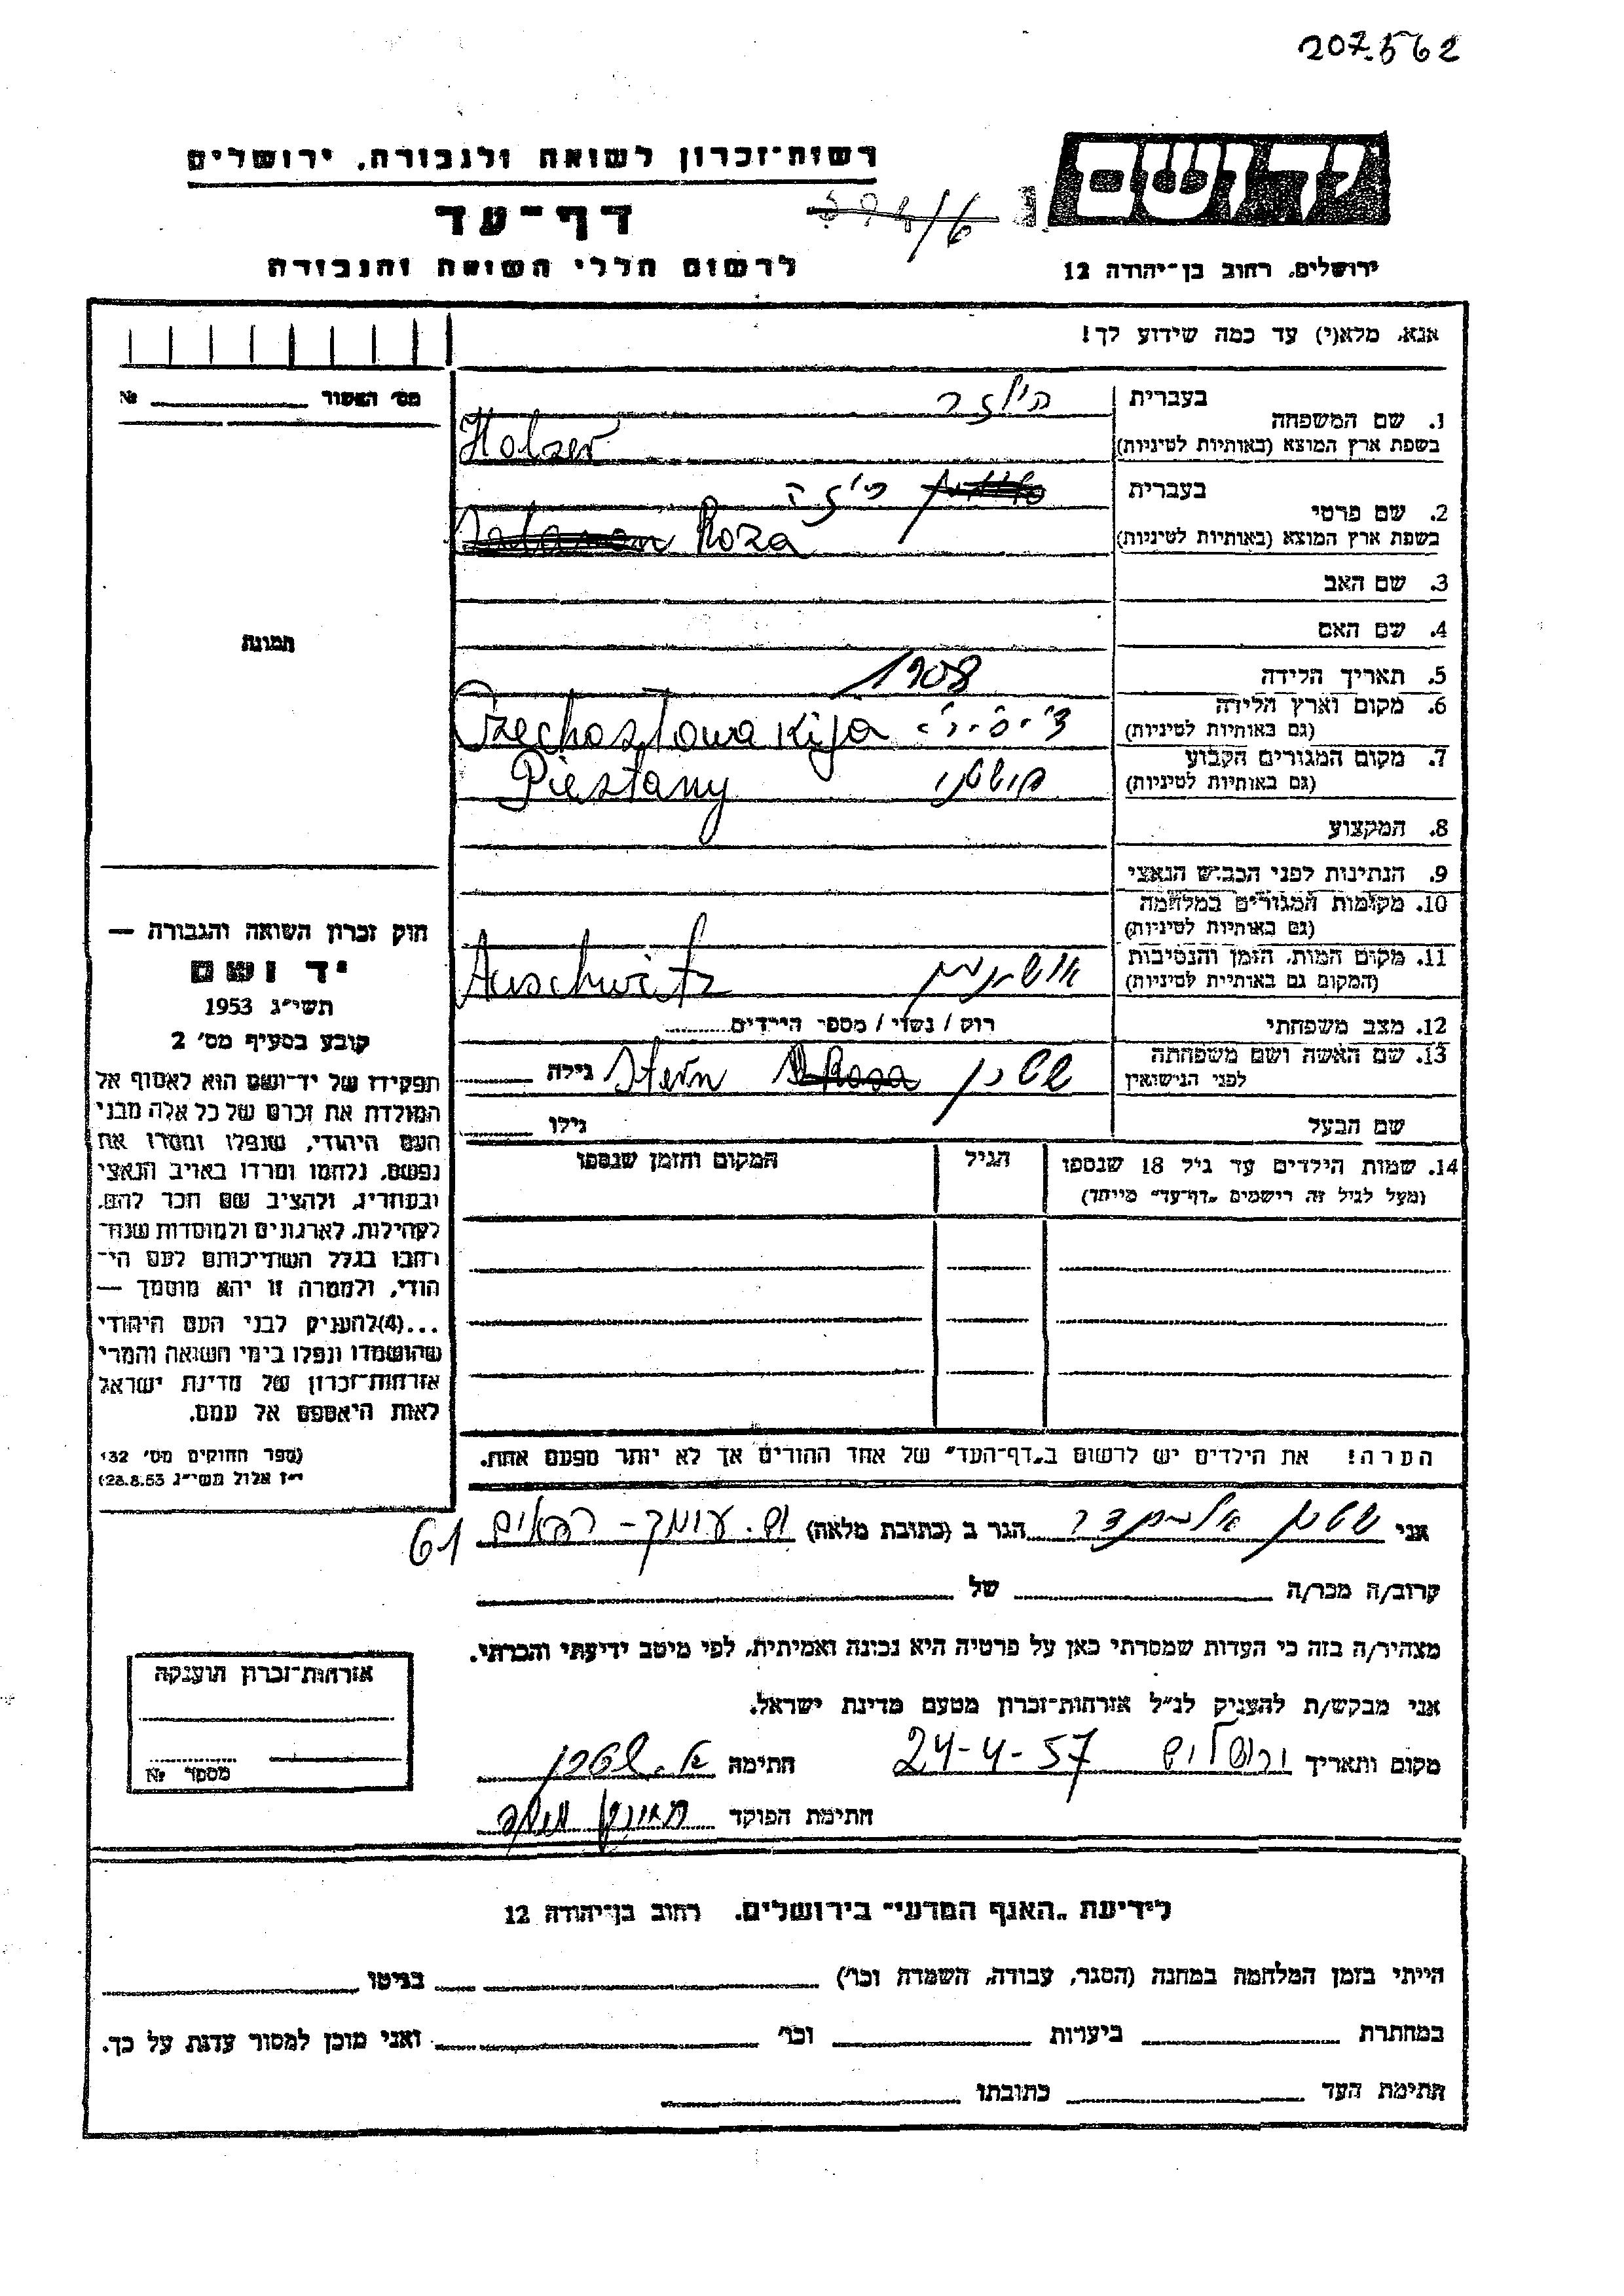 207.562
רשות־זכרון לשואה ולגבורה, ירושלים
יד ושם
דף־עד
לרשום חללי השואה והגבורה
ירושלים, רחוב בן־יהודה 12
אנא, מלא(י) עד כמה שידוע לך!
מס׳ האשור № ________
בעברית הולזר
1. שם המשפחה
בשפת ארץ המוצא (באותיות לטיניות) Holzer
בעברית רוזה
2. שם פרטי
בשפת ארץ המוצא (באותיות לטיניות) Roza
3. שם האב
4. שם האם
5. תאריך הלידה 1908
6. מקום וארץ הלידה
(גם באותיות לטיניות) Czechosztowakija
7. מקום המגורים הקבוע
(גם באותיות לטיניות) פושטני Piestany
8. המקצוע
9. הנתינות לפני הכבוש הנאצי
10. מקומות המגורים במלחמה
(גם באותיות לטיניות)
11. מקום המות, הזמן והנסיבות
(המקום גם באותיות לטיניות) Auschwitz
12. מצב משפחתי רוק / נשוי / מספר הילדים
13. שם האשה ושם משפחתה
לפני הנישואין שטרן Stern גילה
שם הבעל גילו
14. שמות הילדים עד גיל 18 שנספו הגיל המקום והזמן שנספו
(מעל לגיל זה רישמים „דף־עד" מיוחד)
הערה! את הילדים יש לרשום ב„דף־העד" של אחד ההורים אך לא יותר מפעם אחת.
תמונה
חוק זכרון השואה והגבורה —
יד ושם
תשי״ג 1953
קובע בסעיף מס׳ 2
תפקידו של יד־ושם הוא לאסוף אל
המולדת את זכרם של כל אלה מבני
העם היהודי, שנפלו ומסרו את
נפשם, נלחמו ומרדו באויב הנאצי
ובעוזריו, ולהציב שם וזכר להם,
לקהילות, לארגונים ולמוסדות שנח־
רבו בגלל השתייכותם לעם הי־
הודי, ולמטרה זו יהא מוסמך —
...(4) להעניק לבני העם היהודי
שהושמדו ונפלו בימי השואה והמרי
אזרחות־זכרון של מדינת ישראל
לאות היאספם אל עמם.
(ספר החוקים מס׳ 132
י״ז אלול תשי״ג 28.8.53)
אני שטרן אלכסנדר הגר ב (כתובת מלאה) עמק־רפאים 61
קרוב/ה מכר/ה של
מצהיר/ה בזה כי העדות שמסרתי כאן על פרטיה היא נכונה ואמיתית, לפי מיטב ידיעתי והכרתי.
אני מבקש/ת להעניק לנ״ל אזרחות־זכרון מטעם מדינת ישראל.
מקום ותאריך ירושלים 24-4-57 חתימה א. שטרן
חתימת הפוקד
אזרחות־זכרון הוענקה
מספר №
לידיעת „האגף המדעי" בירושלים, רחוב בן־יהודה 12
הייתי בזמן המלחמה במחנה (הסגר, עבודה, השמדה וכו׳) בגיטו
במחתרת ביערות וכו׳ ואני מוכן למסור עדות על כך.
חתימת העד כתובתו